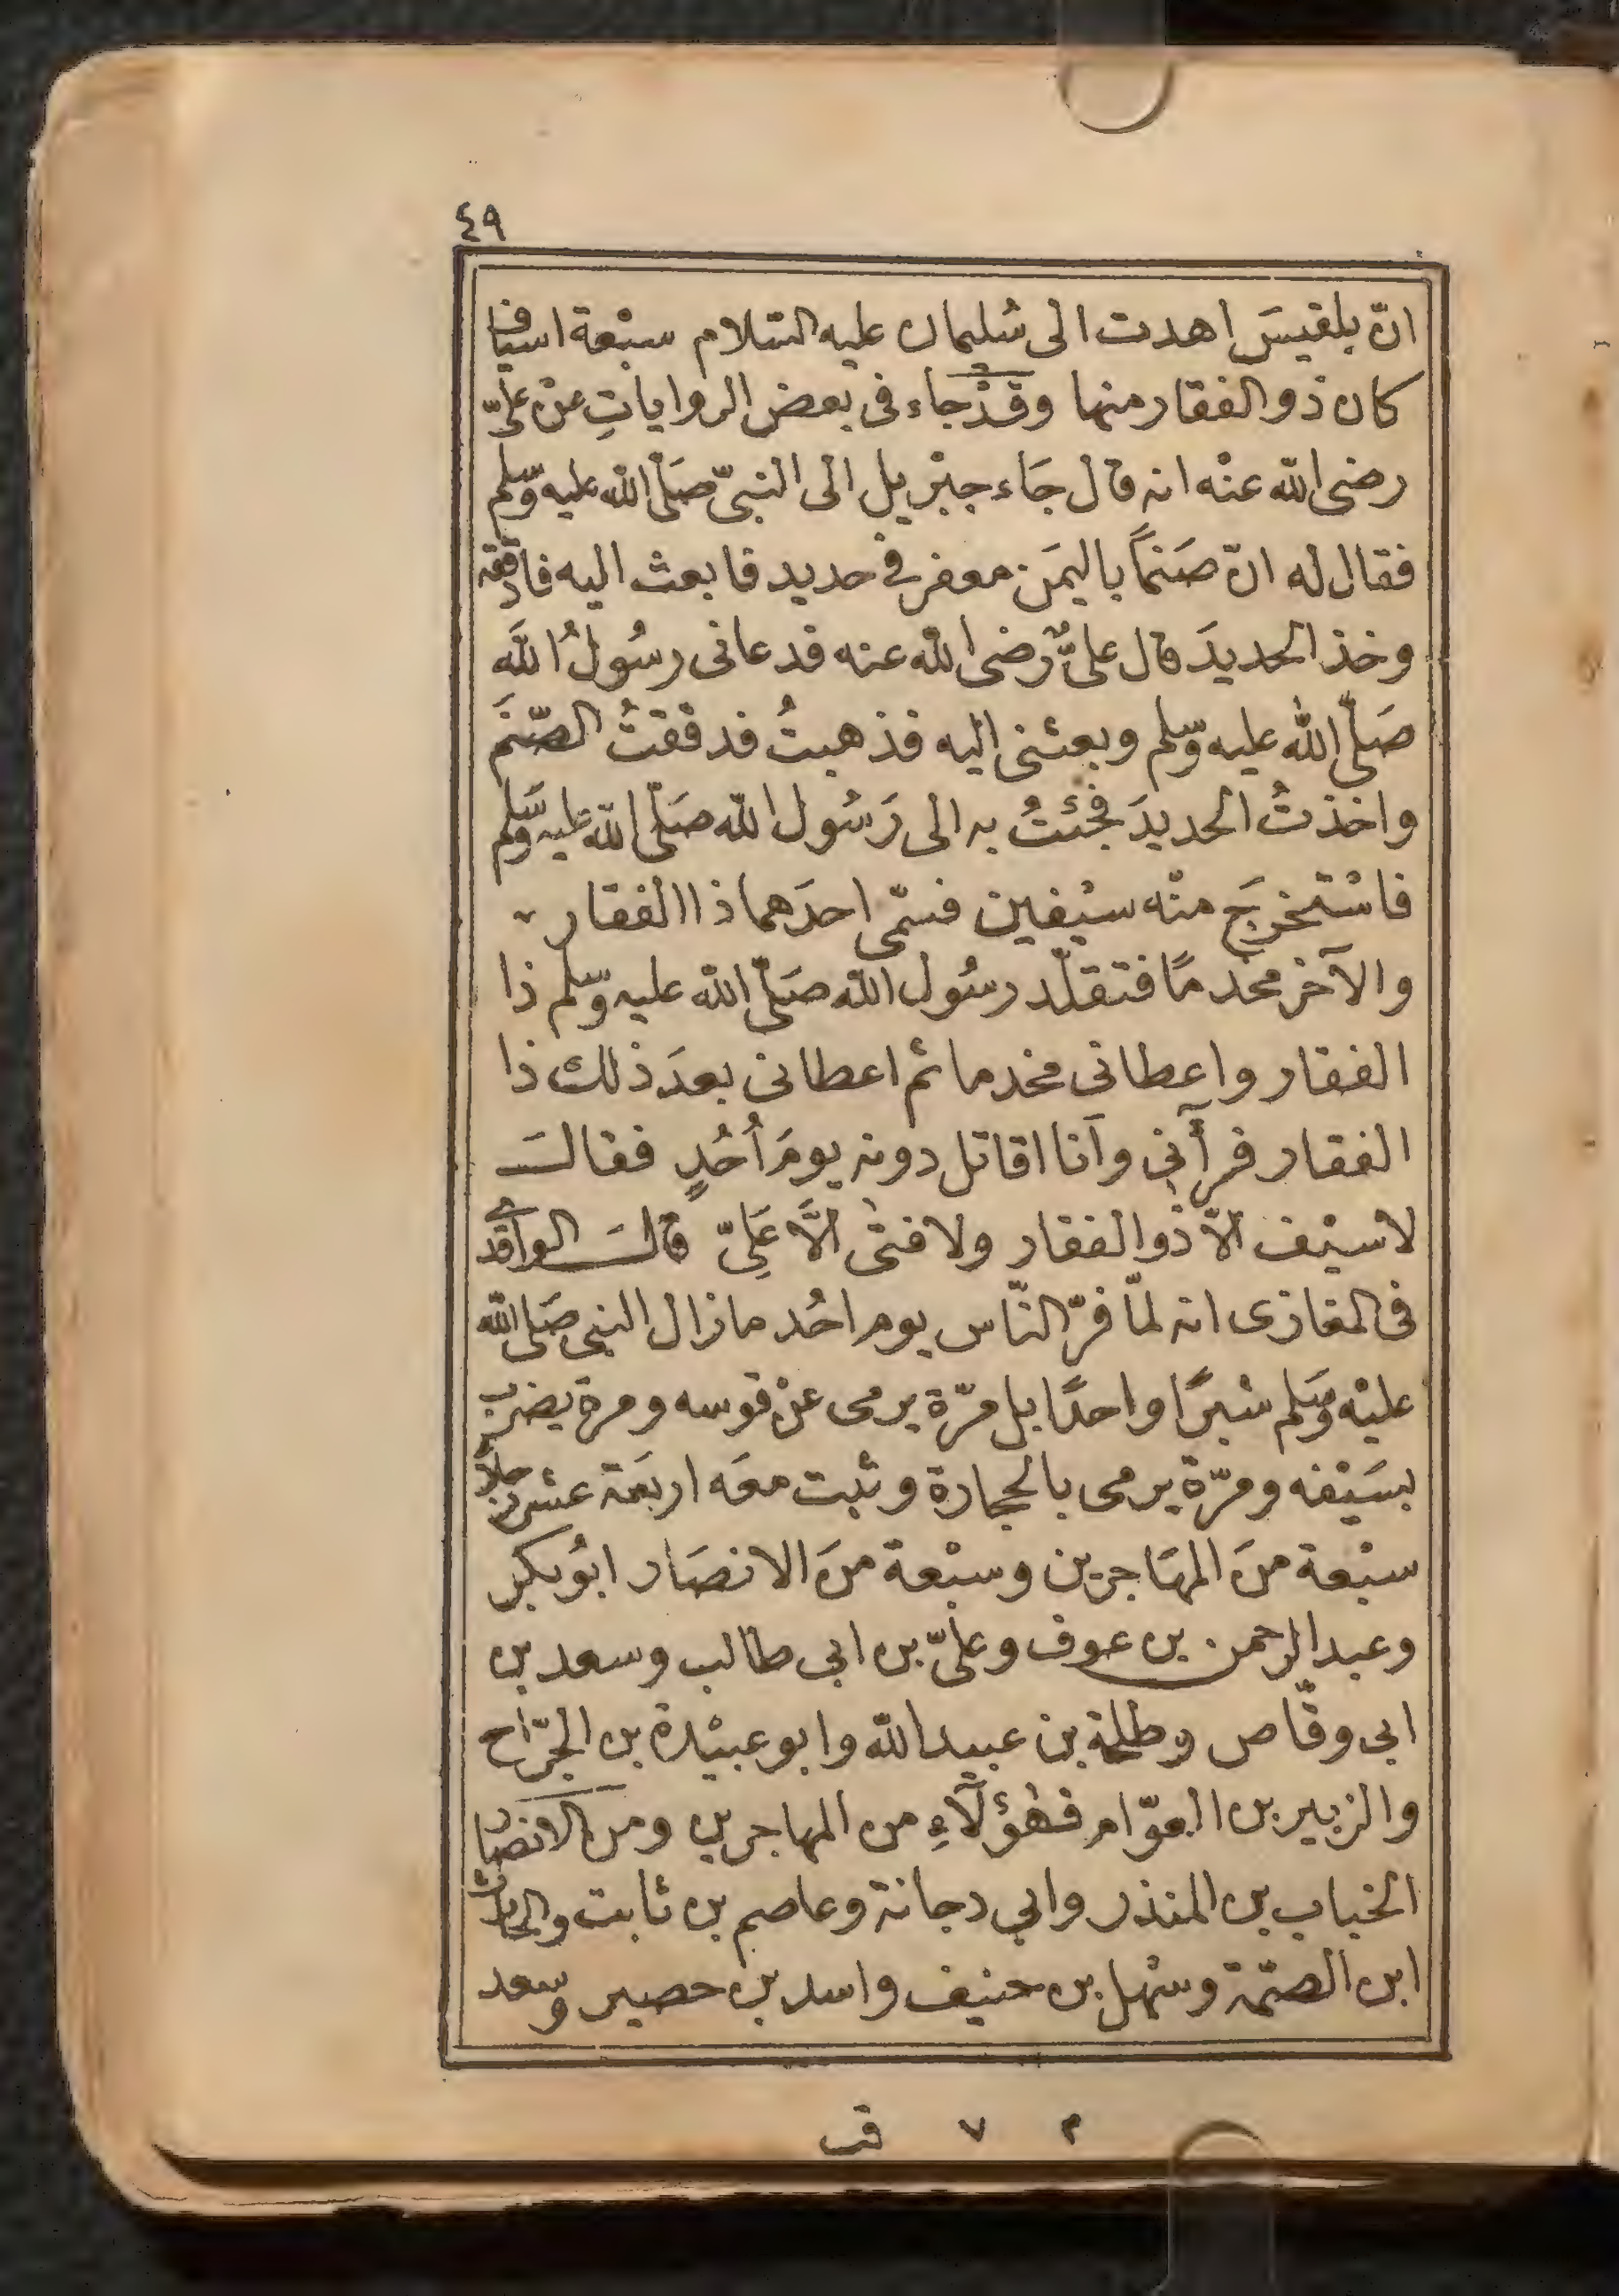 ٤٩
انّ بلقيسَ اهدت الى سُليمان عليه السّلام سبْعة اسياف
كان ذو الفقار منها وقدْ جاء فى بعض الرواياتِ عنْ علىّ
رضى الله عنْه انه قال جَاء جبْريل الى النبىّ صَلّى الله عليه وسّلم
فقال له انّ صَنماً باليمَن معفر فى حديد فابعث اليه فادققه
وخذ الحديدَ قال علىٌّ رضى الله عنه فدعانى رسُولُ اللهَ
صَلّى الله عليه وسّلم وبعثنى اليه فذهبتُ فدققتُ الصّنَم
واخذتُ الحديدَ فجئتُ به الى رَسُول الله صَلّى الله عليه وسَّلم
فاسْتخرجَ منْه سيْفين فسمّى احدَهما ذا الفقار
والآخر مخذمًا فتقلّد رسُول الله صَلّى الله عليه وسّلم ذا
الفقار واعطانى مخذما ثم اعطانى بعدَ ذلك ذا
الفقار فرآنى وانا اقاتل دونه يومَ اُحُدٍ فقالَ
لاسيْف الاّ ذو الفقار ولا فتى الاَّ عَلِىّ قالَ الواقدى
فى المغازى انه لمّا فرّ النّاس يوم احُد مازال النبى صَلى الله
عليْه وسَلم شبرًا واحدًا بل مرّة يرمى عنْ قوسه ومرة يضرب
بسَيْفه ومرّة يرمى بالحجارة وثبت معَه اربعَة عشر رجلاً
سبْعة منَ المهَاجرين وسبْعة منَ الانصَار ابُو بكر
وعبد الرحمن بن عوف وعلىّ بن ابي طالب وسعد بن
ابى وقّاص وطلحة بن عبيد الله وابو عبيْدة بن الجرّاح
والزبير بن العوّام فهؤلآءِ من المهاجرين ومن الانصَار
الخباب بن المنذر وابي دجانة وعاصم بن ثابت والحارث
ابن الصمّة وسْهل بن حنيف واسد بن حصير وسعد
٢ ٧ قب